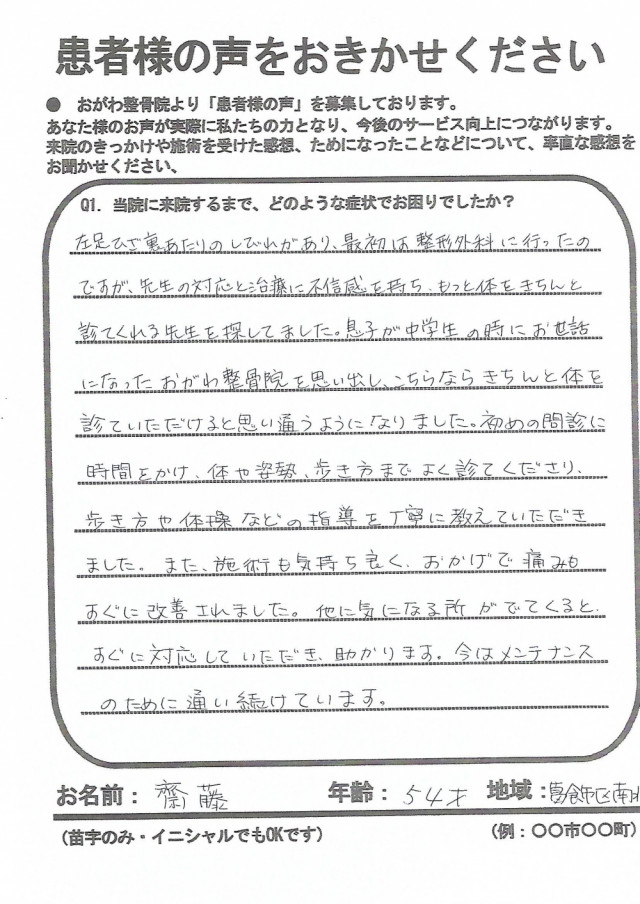 患者様の声をおきかせください
● おがわ整骨院より「患者様の声」を募集しております。
あなた様のお声が実際に私たちの力となり、今後のサービス向上につながります。
来院のきっかけや施術を受けた感想、ためになったことなどについて、率直な感想を
お聞かせください、
Q1. 当院に来院するまで、どのような症状でお困りでしたか？
左足ひざ裏あたりのしびれがあり、最初は整形外科に行ったの
ですが、先生の対応と治療に不信感を持ち、もっと体をきちんと
診てくれる先生を探してました。息子が中学生の時にお世話
になったおがわ整骨院を思い出し、こちらならきちんと体を
診ていただけると思い通うようになりました。初めの問診に
時間をかけ、体や姿勢、歩き方までよく診てくださり、
歩き方や体操などの指導を丁寧に教えていただき
ました。また、施術も気持ち良く、おかげで痛みも
すぐに改善されました。他に気になる所がでてくると、
すぐに対応していただき、助かります。今はメンテナンス
のために通い続けています。
お名前： 齋藤 年齢： 54才 地域： 葛飾区南
（苗字のみ・イニシャルでもOKです） （例：〇〇市〇〇町）